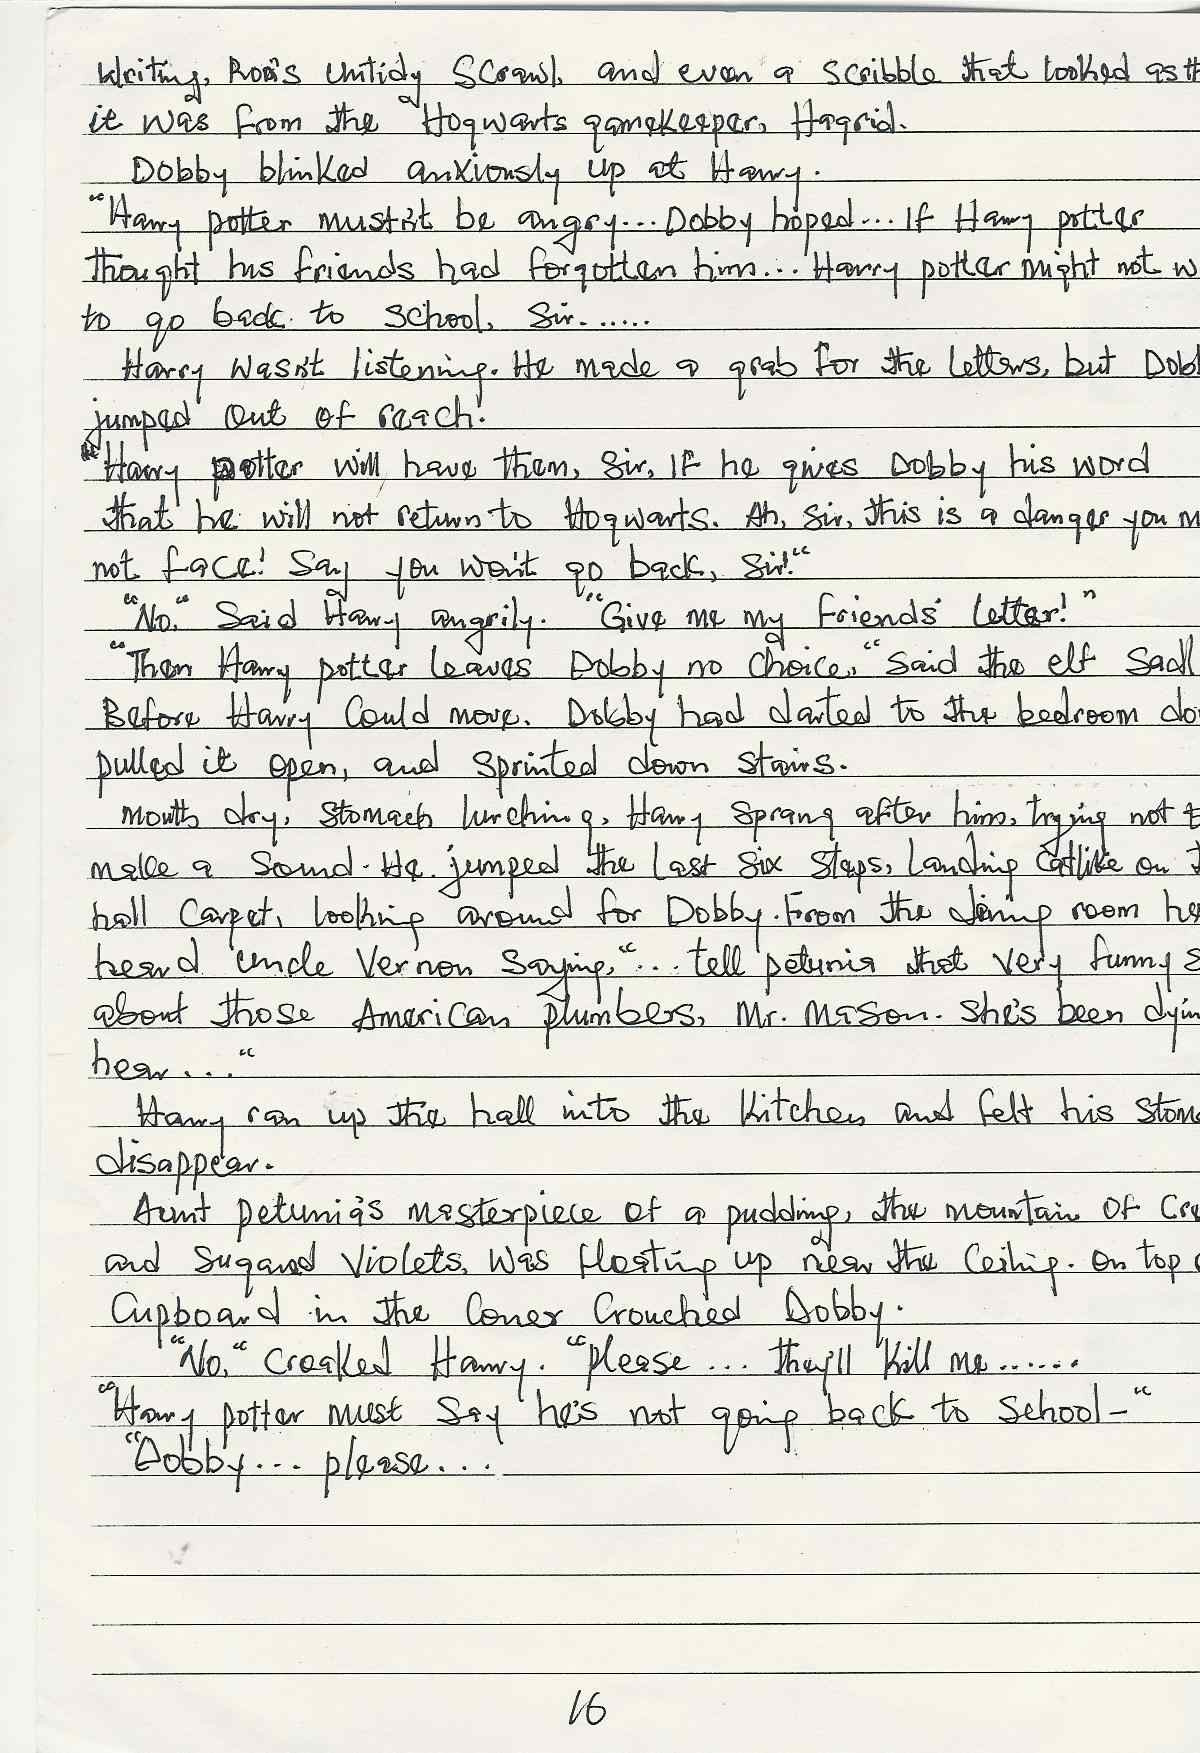 writing, Ron's untidy scrawl, and even a scribble that looked as th
it was from the Hogwarts gamekeeper, Hagrid.
Dobby blinked anxiously up at Harry.
"Harry potter mustn't be angry... Dobby hoped... If Harry potter
thought his friends had forgotten him... Harry potter might not w
to go back to school, Sir......
Harry wasn't listening. He made a grab for the letters, but Dobb
jumped out of reach.
"Harry potter will have them, Sir, If he gives Dobby his word
that he will not return to Hogwarts. Ah, Sir, this is a danger you m
not face! Say you won't go back, Sir!"
"No," Said Harry angrily. "Give me my friends' letter!"
"Then Harry potter leaves Dobby no choice," said the elf sadl
Before Harry Could move, Dobby had darted to the bedroom do
pulled it open, and sprinted down stairs.
Mouth dry, stomach lurching, Harry sprang after him, trying not t
make a sound. He jumped the last six steps, landing catlike on t
hall carpet, looking around for Dobby. From the dining room he
heard uncle Vernon saying, "... tell petunia that very funny s
about those American plumbers, Mr. Mason. She's been dyin
hear..."
Harry ran up the hall into the kitchen and felt his stom
disappear.
Aunt petunia's masterpiece of a pudding, the mountain of Cre
and sugared violets, was floating up near the ceiling. On top o
cupboard in the coner crouched Dobby.
"No," croaked Harry. "please... they'll kill me......
"Harry potter must say he's not going back to school—"
"Dobby... please...
16